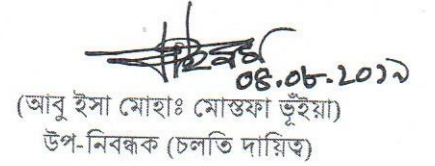 ০৪.০৮.২০১৯
(আবু ইসা মোহাঃ মোস্তফা ভূঁইয়া)
উপ-নিবন্ধক (চলতি দায়িত্ব)